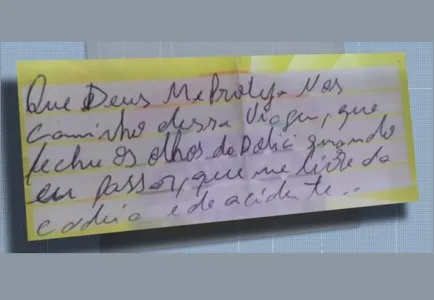 Que Deus Me Proteja Nos
caminho dessa Viagem, que
feche os olhos da Policia quando
eu passar, que me livre da
cadeia e de acidente..